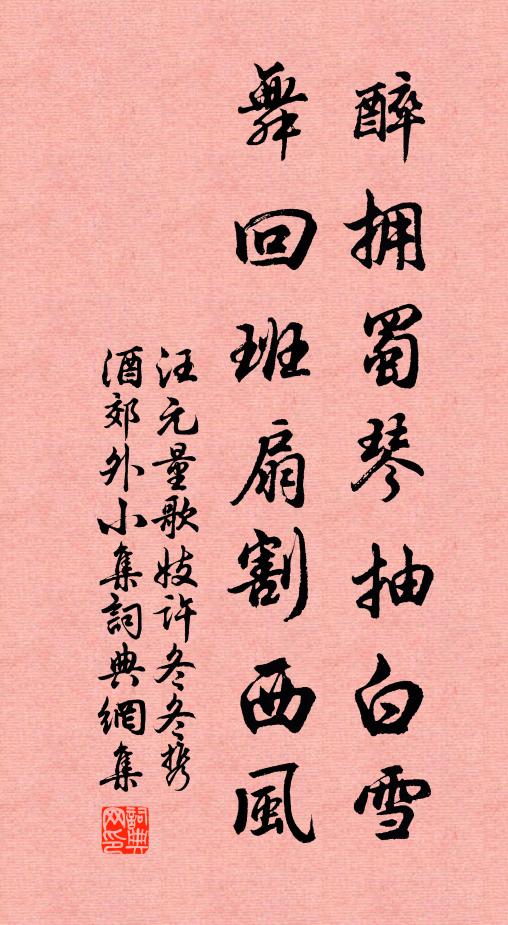 醉拥蜀琴抽白雪
舞回班扇割西風
汪元量歌妓许冬冬携
酒郊外小集詞典網集
詞典网印